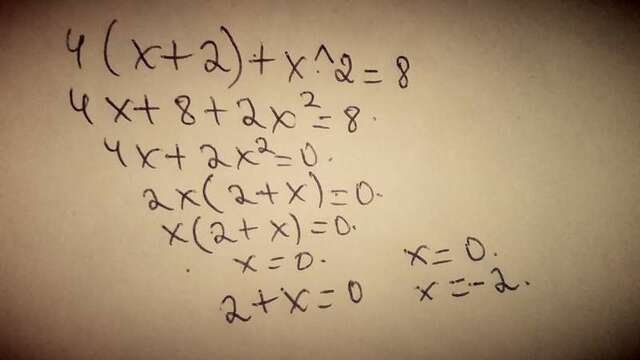 4(x+2)+x^2=8
4x+8+2x²=8.
4x+2x²=0.
2x(2+x)=0.
x(2+x)=0.
x=0. x=0.
2+x=0 x=-2.